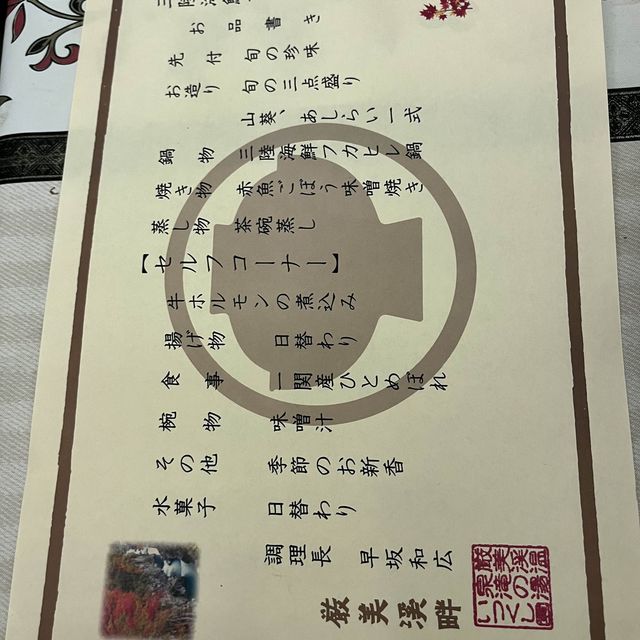 三陸海鮮
お品書き
先付 旬の珍味
お造り 旬の三点盛り
山葵、あしらい一式
鍋物 三陸海鮮フカヒレ鍋
焼き物 赤魚ごぼう味噌焼き
蒸し物 茶碗蒸し
【セルフコーナー】
牛ホルモンの煮込み
揚げ物 日替わり
食事 一関産ひとめぼれ
椀物 味噌汁
その他 季節のお新香
水菓子 日替わり
調理長 早坂和広
厳美渓畔
厳美渓温
泉滝の湯
いつくし園